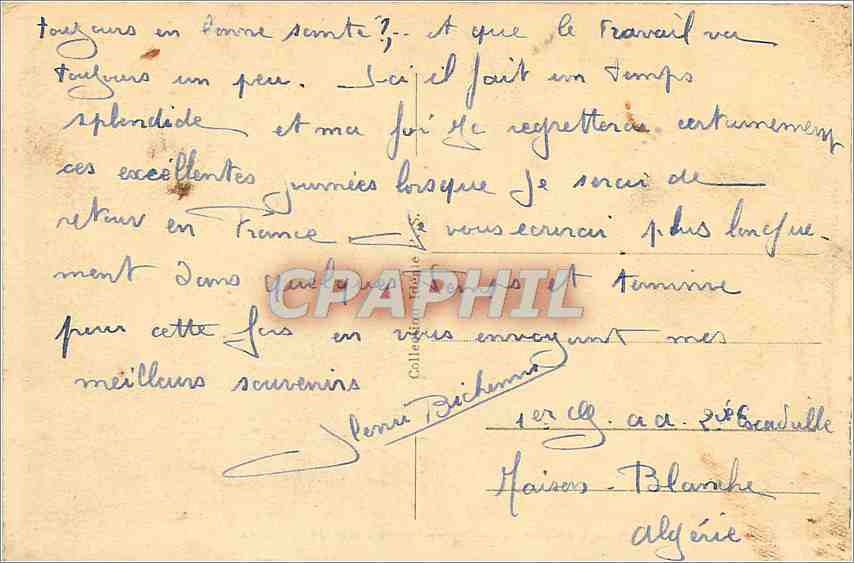 toujours en bonne sainte ?,.. et que le travail va
toujours un peu. Ici il fait un temps
splendide et ma foi je regretterai certainement
ces excellentes journées lorsque je serai de
retour en France. Je vous ecrirai plus longue-
ment dans quelques temps et termine
pour cette fois en vous envoyant mes
meilleurs souvenirs
Henri
1er
2e Escadrille
Maison-Blanche
Algérie
Collection Idéale P.S.
CPAPHIL